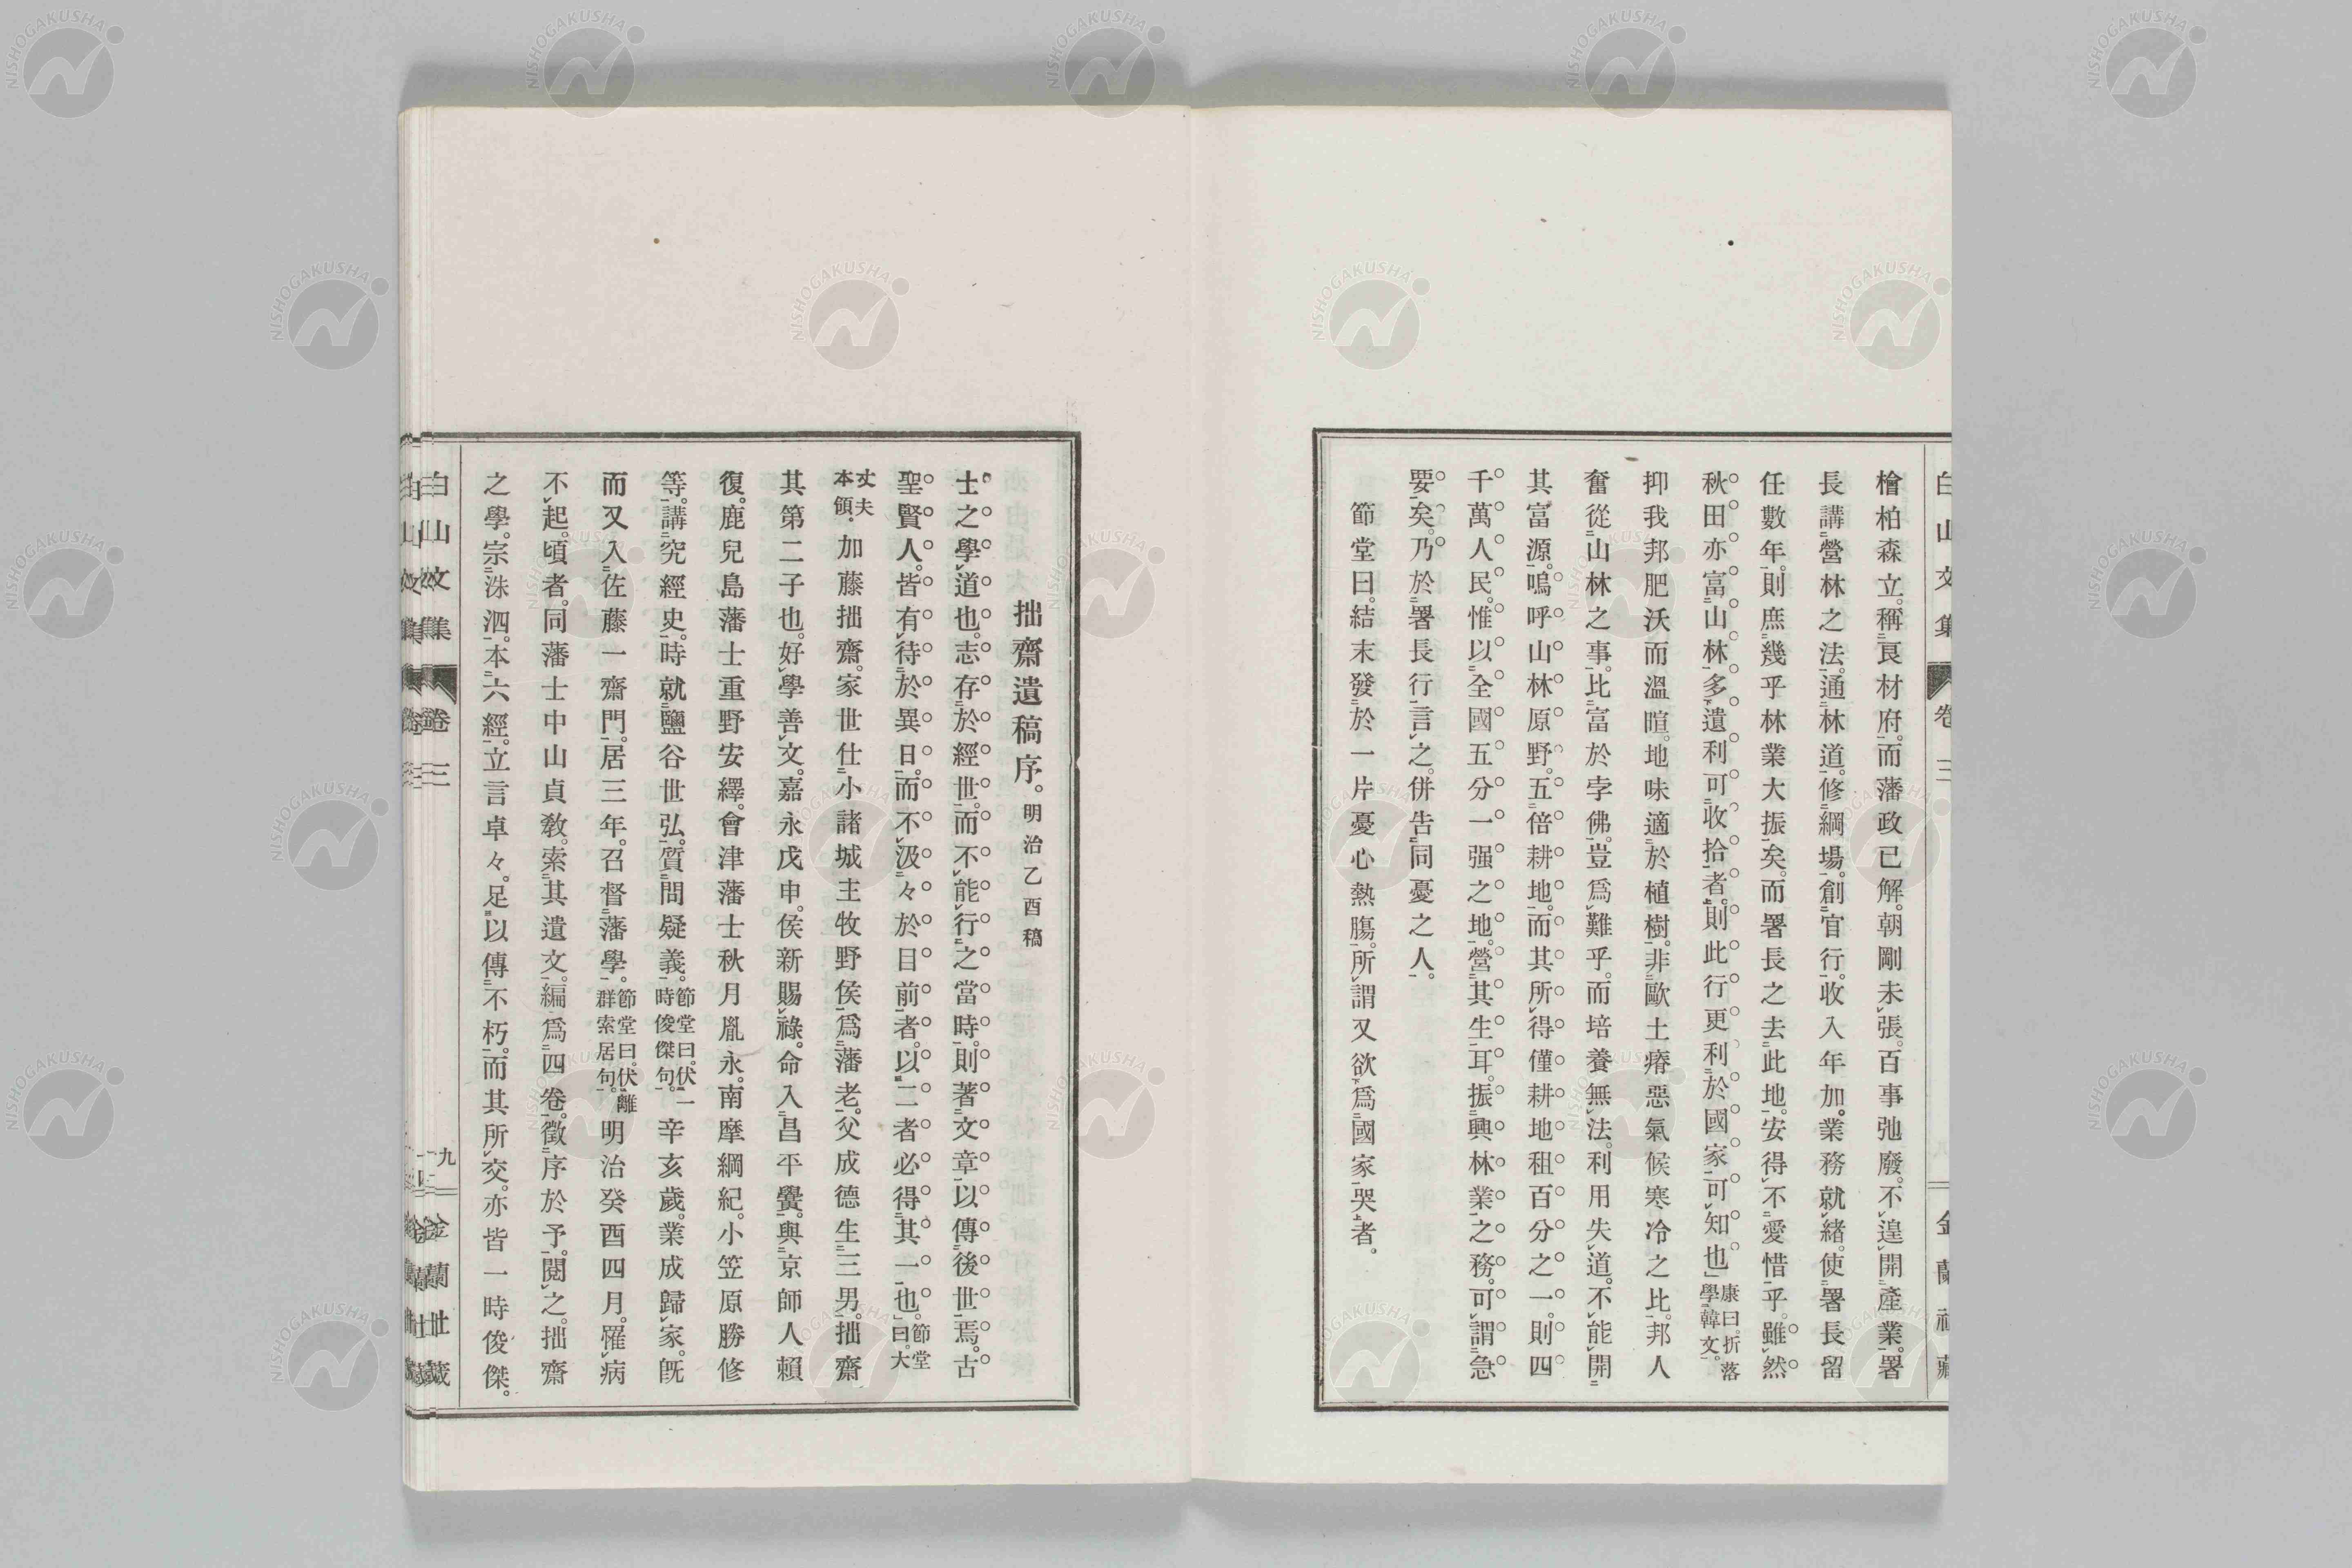 白山文集 卷三 金蘭社藏
檜柏森立。稱良材府。而藩政已解。朝剛未張。百事弛廢。不遑開產業。署
長講營林之法。通林道。修綱場。創官行。收入年加。業務就緒。使署長留
任數年。則庶幾乎林業大振矣。而署長之去此地。安得不愛惜乎。雖然
秋田亦富山林。多遺利可收拾者。則此行更利於國家可知也」康曰。折落學韓文。
抑我邦肥沃而溫暄。地味適於植樹。非歐土瘠惡氣候寒冷之比。邦人
奮從山林之事。比富於孛佛。豈爲難乎。而培養無法。利用失道。不能開
其富源。嗚呼山林原野。五倍耕地。而其所得僅耕地租百分之一。則四
千萬人民。惟以全國五分一强之地。營其生耳。振興林業之務。可謂急
要矣。乃於署長行言之。併告同憂之人。
節堂曰。結末發於一片憂心熱膓。所謂又欲爲國家哭者。
拙齋遺稿序。明治乙酉稿
士之學道也。志存於經世。而不能行之當時。則著文章以傳後世焉。古
聖賢人。皆有待於異日。而不汲々於目前者。以二者必得其一也。」節堂曰。大
丈夫本領。加藤拙齋。家世仕小諸城主牧野侯。爲藩老。父成德生三男。拙齋
其第二子也。好學善文。嘉永戊申。侯新賜祿。命入昌平黌。與京師人賴
復。鹿兒島藩士重野安繹。會津藩士秋月胤永。南摩綱紀。小笠原勝修
等。講究經史。時就鹽谷世弘。質問疑義。節堂曰。伏一時俊傑句。辛亥歲。業成歸家。既
而又入佐藤一齋門。居三年。召督藩學。節堂曰。伏離群索居句。明治癸酉四月。罹病
不起。頃者。同藩士中山貞敎。索其遺文。編爲四卷。徵序於予。閱之。拙齋
之學。宗洙泗。本六經。立言卓々。足以傳不朽。而其所交。亦皆一時俊傑。
白山文集 卷三 九 金蘭社藏